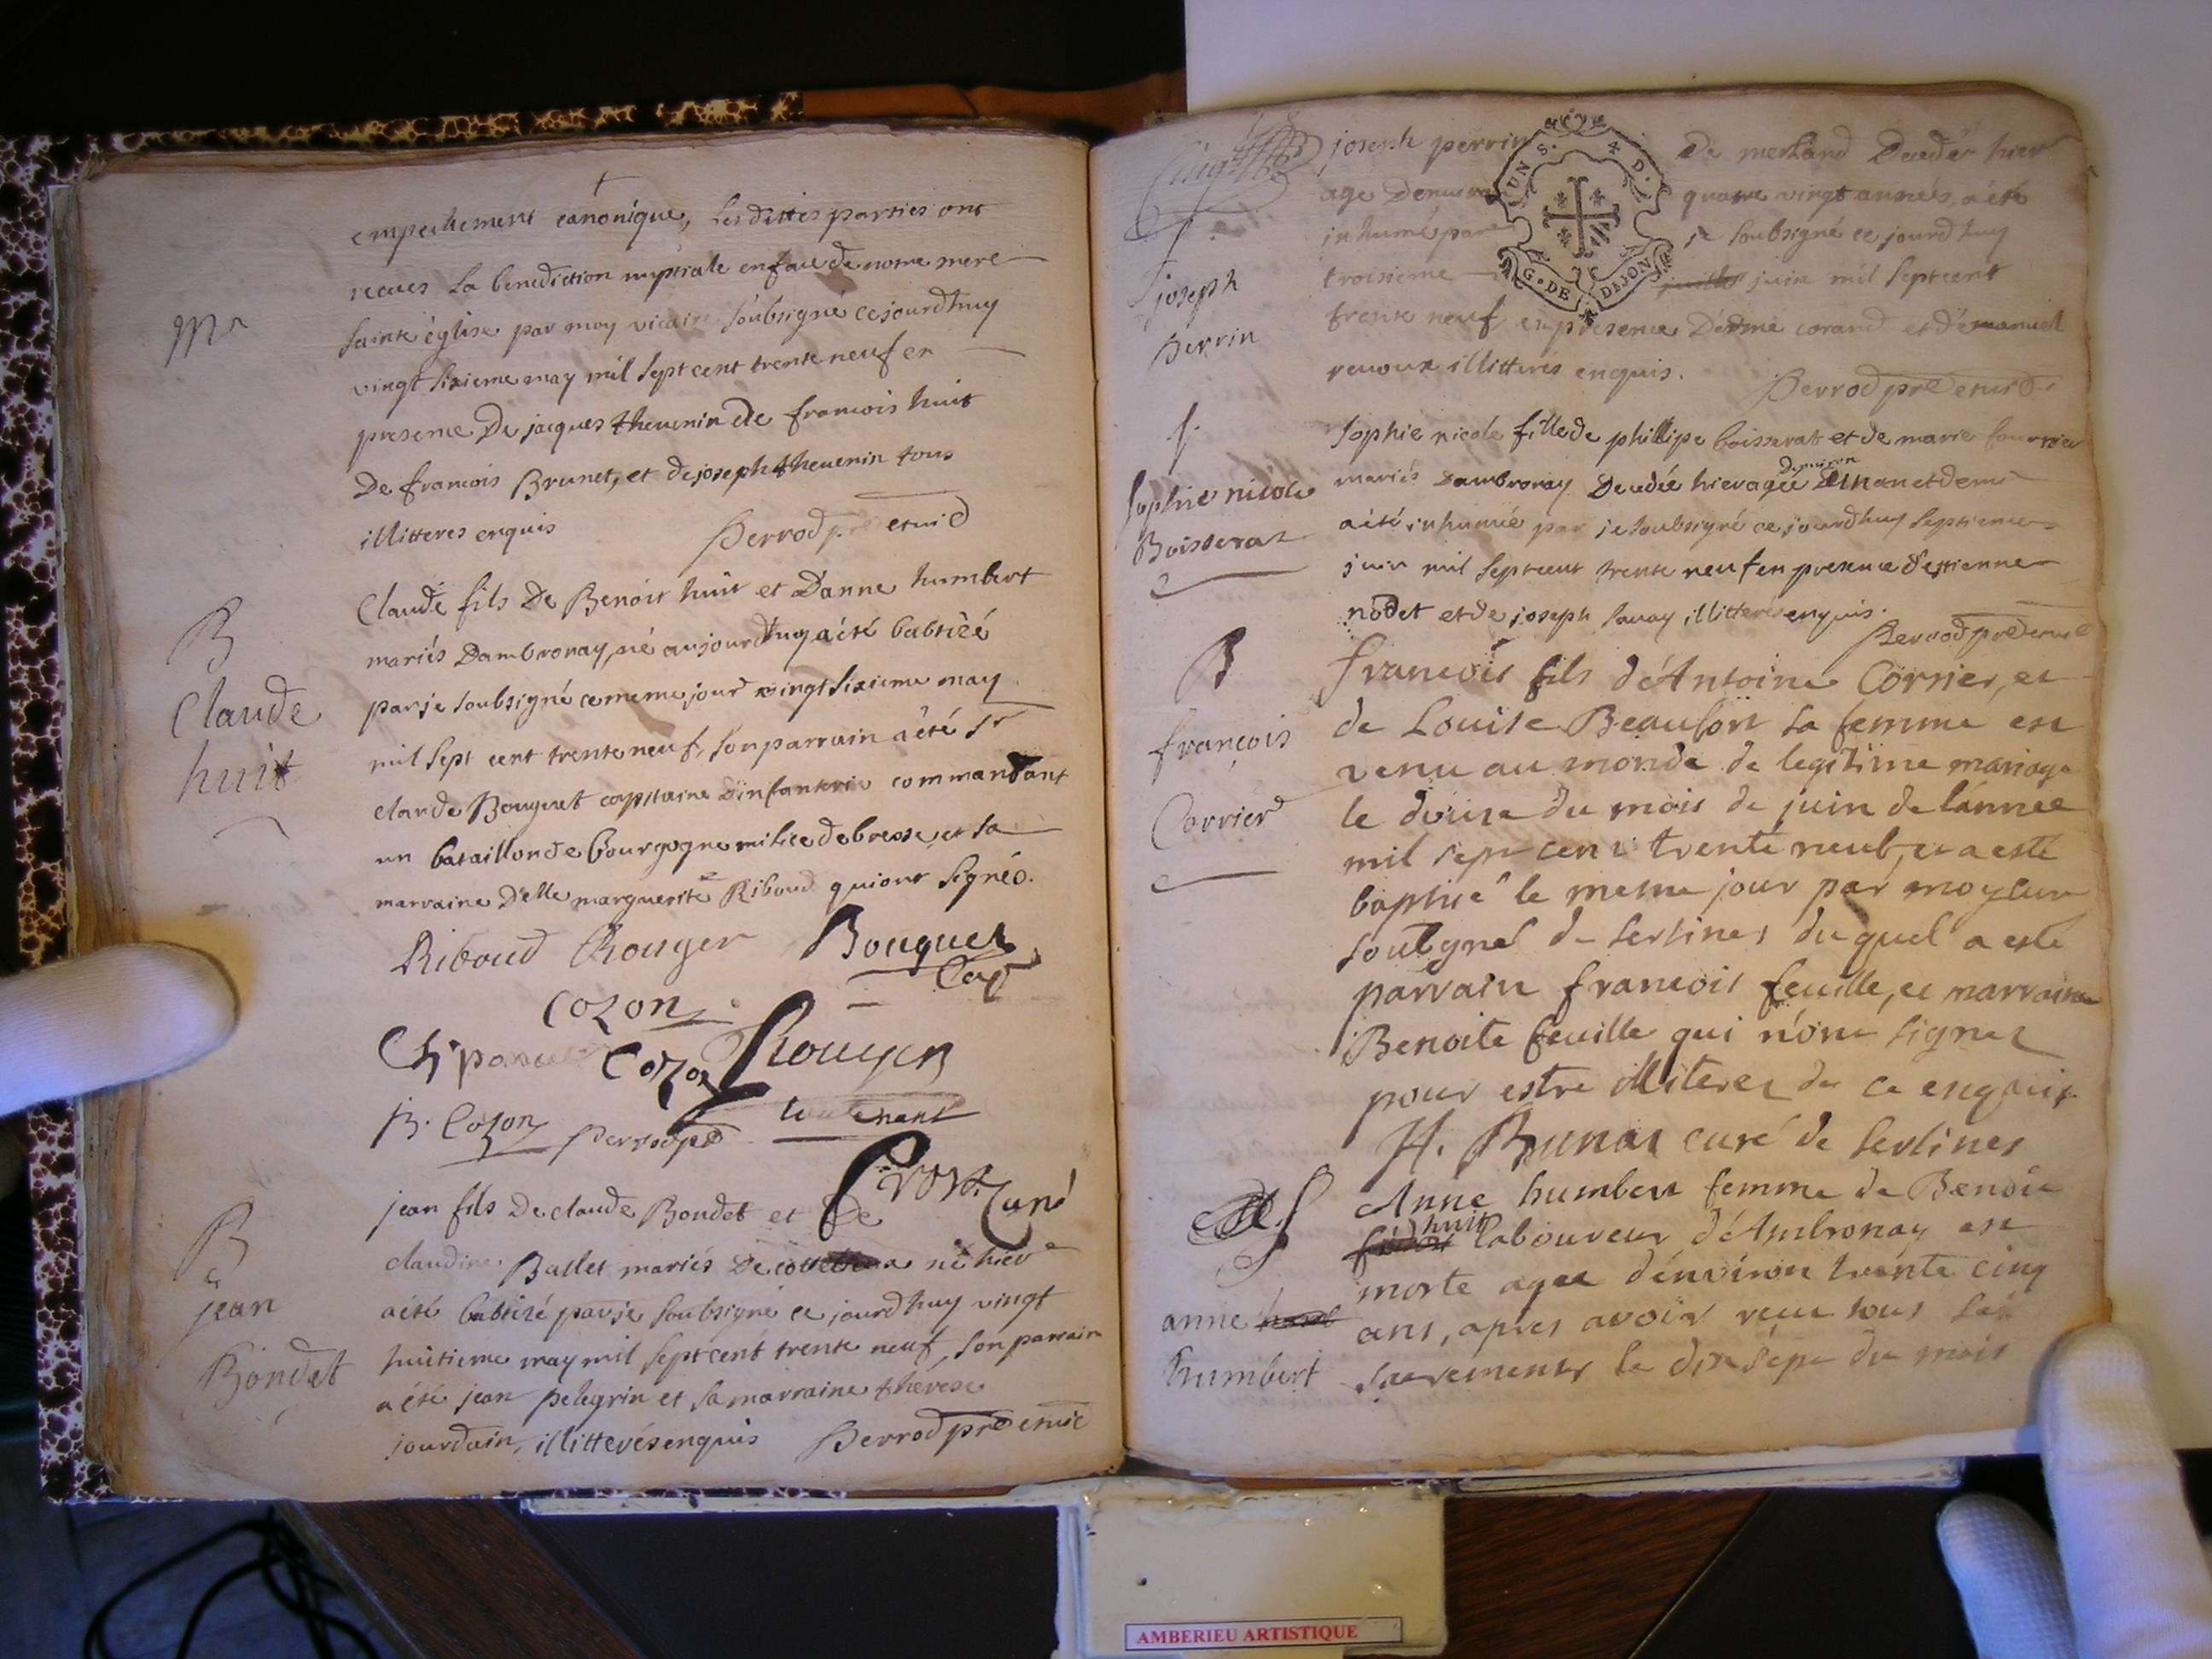 empechement canonique, Lesdittes parties ont
recues La benediction nuptiale en face de notre mere
Sainte église par moy vicaire soubsigné cejourdhuy
Mr
vingt sixieme may mil sept cent trente neuf en
presence De jacques thevenin de francois huit
De francois Brunet, et de joseph thevenin tous
illitteres enquis Perrod pre et vic
Claude fils De Benoit huit et D'anne humbert
B
mariés Dambronay, né aujourdhuy a été babtizé
Claude
par je soubsigné ce meme jour vingt sixieme may
huit
mil sept cent trente neuf, son parrain a été sr
claude Bouquet capitaine d'infanterie commandant
un bataillon de bourgogne milice de bresse, et sa
marraine delle marguerite Riboud qui ont signés.
Riboud Rouger Bouquet
Cap
Cozon
Cozon Rouyer
B. Cozon Perrod pre Lieutenant
Curé
jean fils De claude Bondet et de
B
claudine Ballet mariés De né hier
jean
a été babtizé par je soubsigné ce jourdhuy vingt
Bondet
huitieme may mil sept cent trente neuf, son parrain
a été jean pelegrin et sa marraine therese
jourdain, illitterés enquis Perrod pre et vic
joseph perrin De merland Decedé hier
age Denviron quatre vingt années, a été
inhumé par je soubsigné ce jourdhuy
S
joseph
perrin
troisieme juin mil sept cent
trente neuf en presence D'edme corand et d'emanuel
revoux illitterés enquis.
Perrod pre et vic
S
Sophie nicole
Boisserat
Sophie nicole fille de phillipe boisserat et de marie fournier
mariés Dambronay Decedée hier agée Denviron D'un an et demi
a été inhumée par je soubsigné ce jourdhuy septieme
juin mil sept cent trente neuf en presence d'estienne
nodet et de joseph savay illitterés enquis.
Perrod pre et vic
B
françois
Corrier
francois fils d'Antoine Corrier, et
de Louise Beaufort sa femme est
venu au monde de legitime mariage
le douze du mois de juin de lannée
mil sept cent trente neuf, et a esté
baptisé le meme jour par moy curé
soubsigné de Serlines duquel a esté
parrain francois feuille, et marraine
Benoite feuille qui n'ont signez
pour estre illiterez de ce enquis.
H. Brunet curé de Serlines
S
anne
humbert
Anne humbert femme de Benoit
huit laboureur d'Ambronay est
morte agee d'environ trente cinq
ans, apres avoir receu tous les
sacrements le dix sept du mois
UN S. 4 D.
G. DE DIJON
AMBERIEU ARTISTIQUE